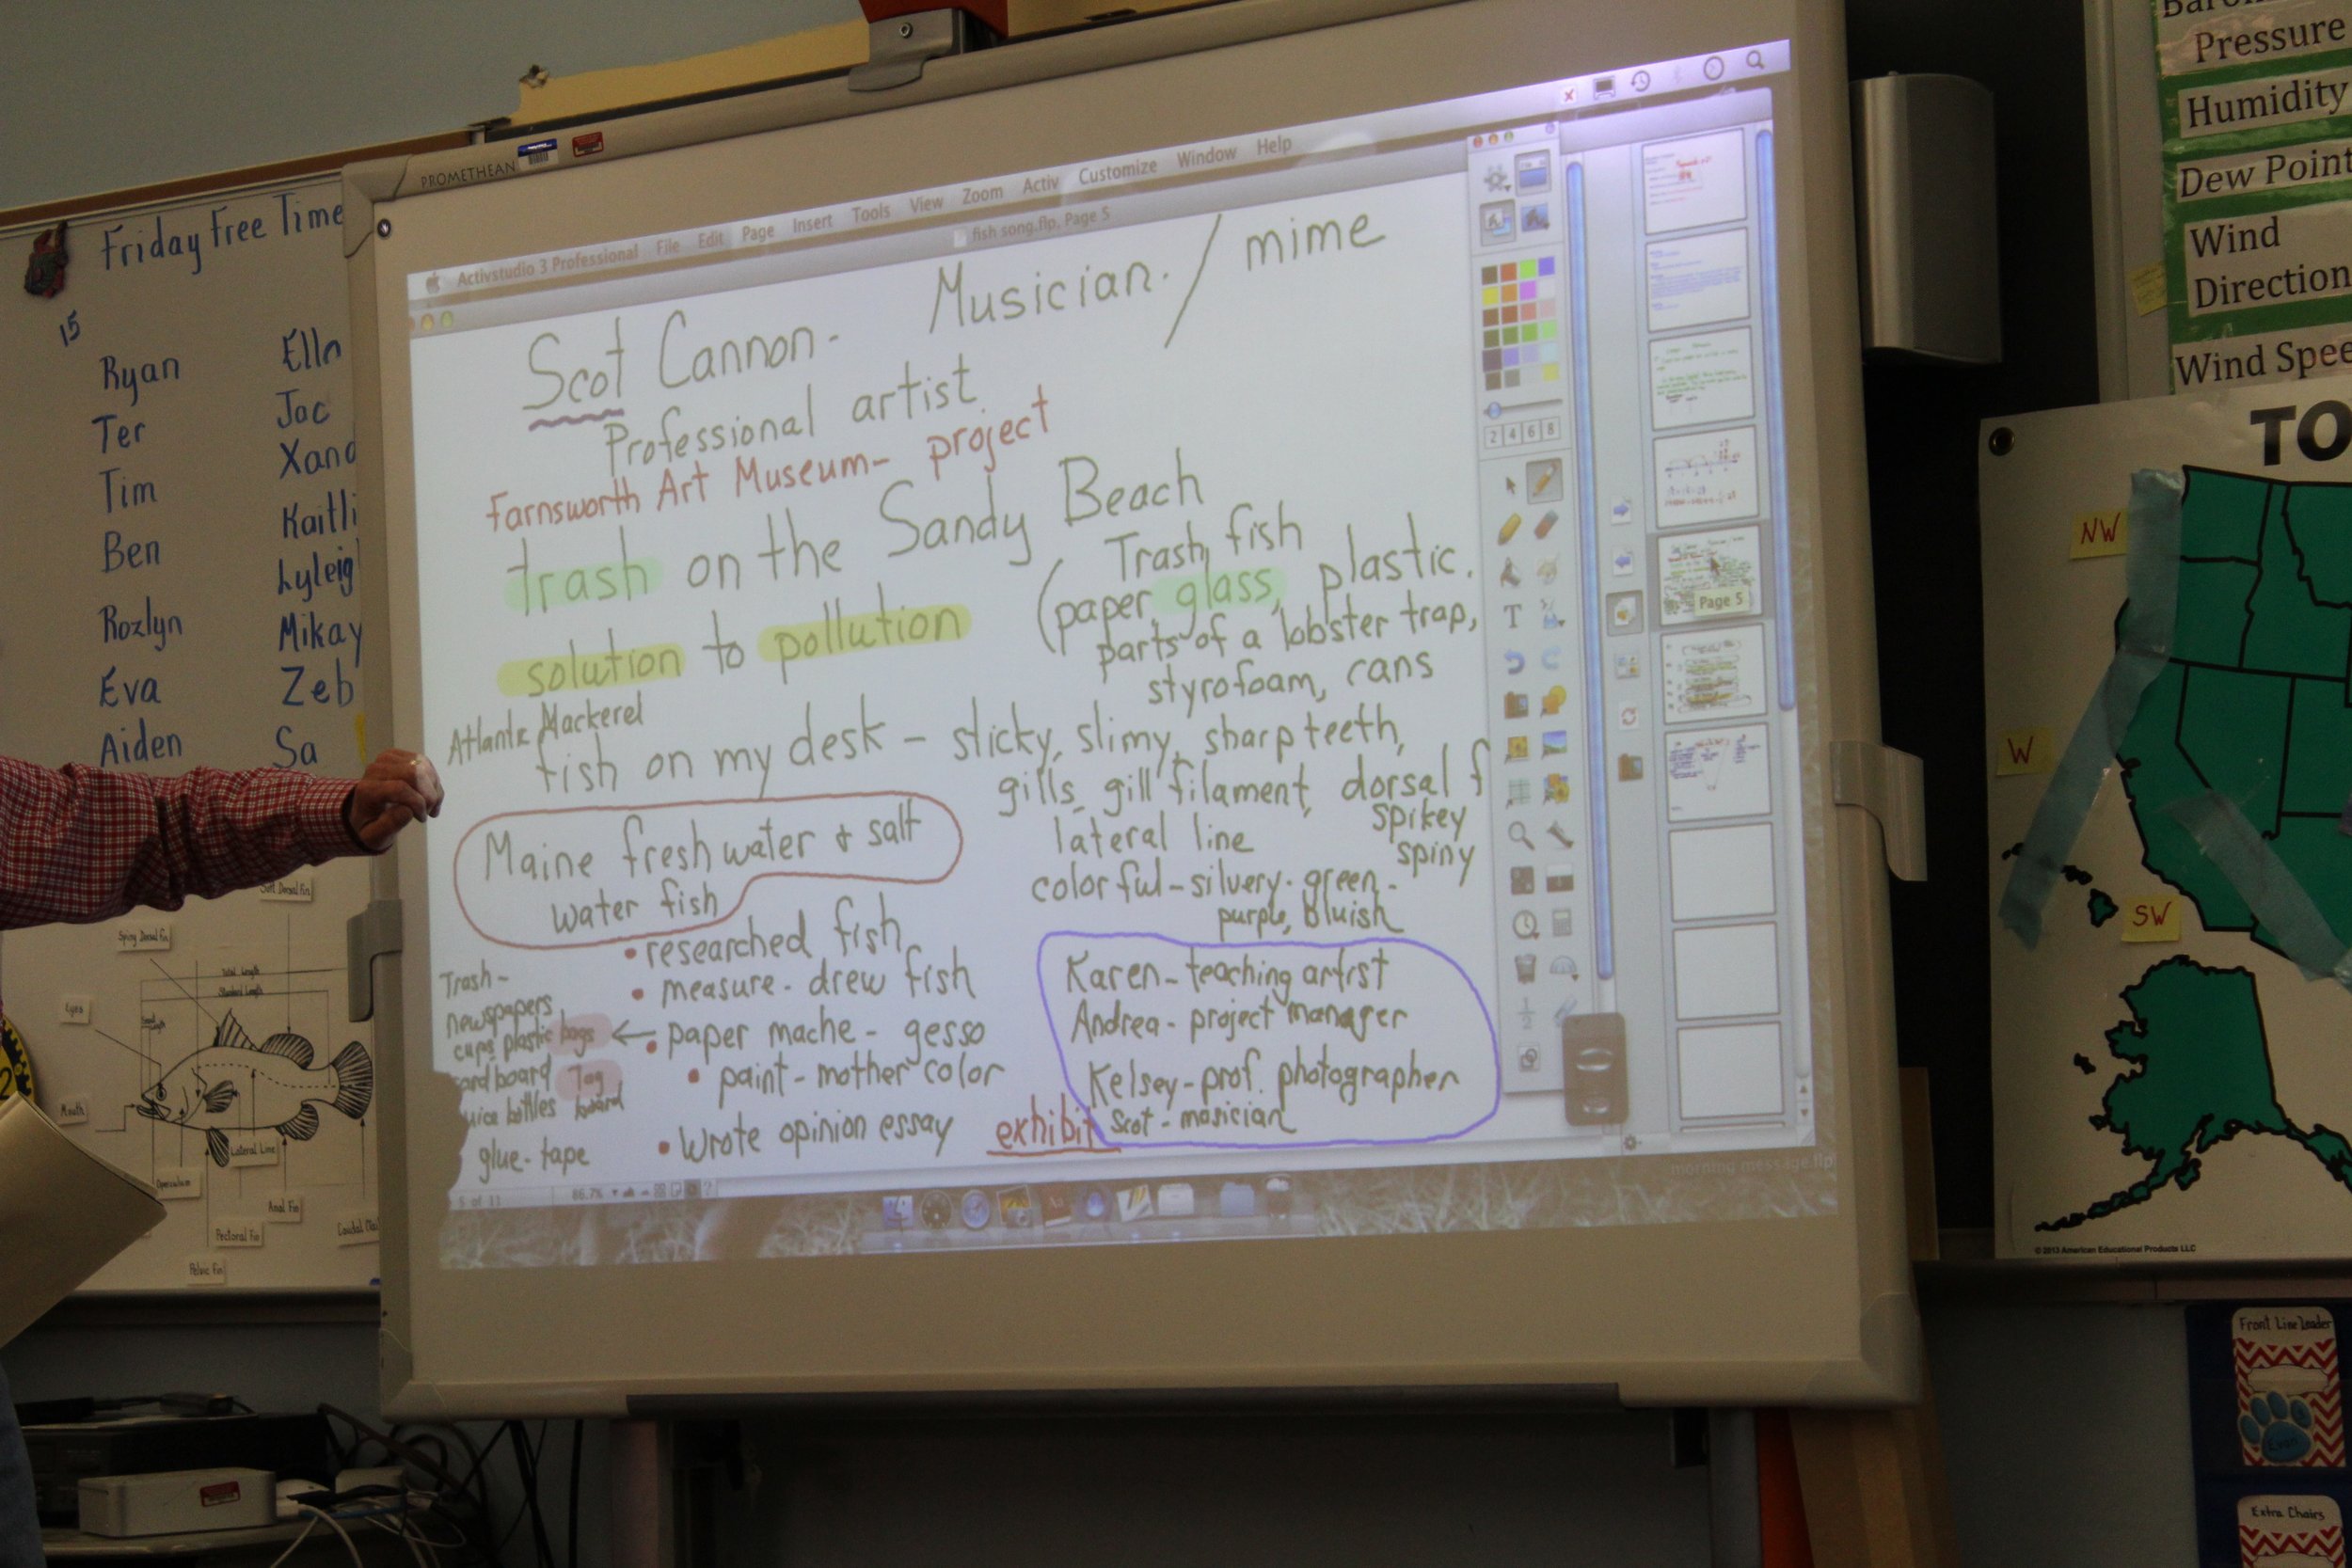 Friday Free Time
15
Ryan
Ter
Tim
Ben
Rozlyn
Eva
Aiden
Ella
Jac
Xand
Kaitli
Lyleig
Mikay
Zeb
Sa
Soft Dorsal Fin
Spiny Dorsal Fin
Total Length
Standard Length
Eyes
Mouth
Operculum
Lateral Line
Anal Fin
Pectoral Fin
Pelvic Fin
PROMETHEAN
Activstudio 3 Professional File Edit Page Insert Tools View Zoom Activ Customize Window Help
fish song.flp, Page 5
Scot Cannon - Musician. / mime
Professional artist
Farnsworth Art Museum - project
trash on the Sandy Beach
solution to pollution
Trash fish
(paper, glass, plastic.
parts of a lobster trap,
styrofoam, cans
Atlantic Mackerel
fish on my desk - sticky, slimy, sharp teeth,
gills, gill filament, dorsal f
spikey
spiny
lateral line
colorful - silvery - green -
purple, bluish
Maine fresh water & salt
water fish
• researched fish
• measure - drew fish
• paper mache - gesso
• paint - mother color
• wrote opinion essay
exhibit
Trash -
newspapers
cups plastic bags ←
cardboard Tag
board
juice bottles
glue - tape
Karen - teaching artist
Andrea - project manager
Kelsey - prof. photographer
Scot - musician
2 4 6 8
T
Page 5
5 of 11
86.7%
morning message.flp
Pressure
Humidity
Dew Point
Wind
Direction
Wind Spee
TO
NW
W
SW
© 2013 American Educational Products LLC
Front Line Leader
Evan
Extra Chairs